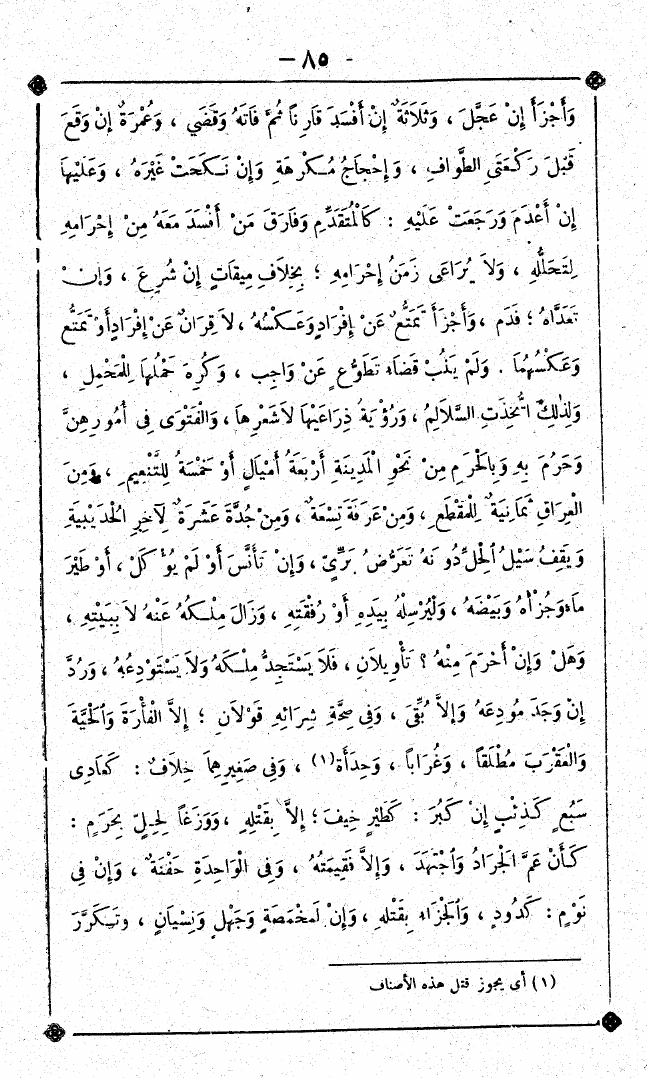 - ٨٥ -
وَأَجْزَأَ إِنْ عَجَّلَ ، وَثَلَاثَةٌ إِنْ أَفْسَدَ قَارِنًا ثُمَّ فَاتَهُ وَقَضَي ، وَعُمْرَةٌ إِنْ وَقَعَ
قَبْلَ رَكْعَتَيِ الطَّوافِ ، وَإِحْجَاجُ مُكْرَهَةٍ وَإِنْ نَكَحَتْ غَيْرَهُ ، وَعَلَيْهَا
إِنْ أَعْدَمَ وَرَجَعَتْ عَلَيْهِ : كَالْمُتَقَدِّمِ وَفَارَقَ مَنْ أَفْسَدَ مَعَهُ مِنْ إِحْرَامِهِ
لِتَحَلُّلِهِ ، وَلَا يُرَاعَى زَمَنُ إِحْرَامِهِ ؛ بِخِلَافِ مِيقَاتٍ إِنْ شُرِعَ ، وَإِنْ
تَعَدَّاهُ ؛ فَدَم ، وَأَجْزَأَ تَمَتُّعٌ عَنْ إِفْرَادٍ وَعَكْسُهُ ، لَا قِرَانٌ عَنْ إِفْرَادٍ أَوْ تَمَتُّعٍ
وَعَكْسُهُمَا . وَلَمْ يَنُبْ قَضَاءُ تَطَوُّعٍ عَنْ وَاجِبٍ ، وَكُرِهَ حَمْلُهَا لِلْمَحْمِلِ ،
وَلِذَلِكَ اتُّخِذَتِ السَّلَالِمُ ، وَرُؤْيَةُ ذِرَاعَيْهَا لَا شَعْرِهَا ، وَالْفَتْوَى فِى أُمُورِهِنَّ
وَحَرُمَ بِهِ وَبِالْحَرَمِ مِنْ نَحْوِ الْمَدِينَةِ أَرْبَعَةُ أَمْيَالٍ أَوْ خَمْسَةٌ لِلتَّنْعِيمِ ، وَمِنَ
الْعِرَاقِ ثَمَانِيَةٌ لِلْمَقْطَعِ ، وَمِنْ عَرَفَةَ تِسْعَةٌ ، وَمِنْ جُدَّةَ عَشَرَةٌ لِآخِرِ الْحُدَيْبِيَةِ
وَيَقِفُ سَيْلُ الْحِلِّ دُونَهُ تَعَرُّضُ بَرِّيٍّ ، وَإِنْ تَأَنَّسَ أَوْ لَمْ يُؤْكَلْ ، أَوْ طَيْرَ
مَاءٍ وَجُزْأَهُ وَبَيْضَهُ ، وَلْيُرْسِلْهُ بِيَدِهِ أَوْ رُفْقَتِهِ ، وَزَالَ مِلْكُهُ عَنْهُ لَا بِبَيْتِهِ ،
وَهَلْ وَإِنْ أَحْرَمَ مِنْهُ ؟ تَأْوِيلَانِ ، فَلَا يَسْتَجِدُّ مِلْكَهُ وَلَا يَسْتَوْدِعُهُ ، وَرُدَّ
إِنْ وَجَدَ مُودِعَهُ وَإِلَّا بُقِّىَ ، وَفِى صِحَّةِ شِرَائِهِ قَوْلَانِ ؛ إِلَّا الْفَأْرَةَ وَالْحَيَّةَ
وَالْعَقْرَبَ مُطْلَقًا ، وَغُرَابًا ، وَحِدَأَةً (١) ، وَفِى صَغِيرِهِمَا خِلَافٌ : كَعَادِى
سَبُعٍ كَذِئْبٍ إِنْ كَبُرَ : كَطَيْرٍ خِيفَ ؛ إِلَّا بِقَتْلِهِ ، وَوَزَغًا لِحِلٍّ بِحَرَمٍ :
كَأَنْ عَمَّ الْجَرَادُ وَاجْتَهَدَ ، وَإِلَّا فَقِيمَتُهُ ، وَفِى الْوَاحِدَةِ حَفْنَةٌ ، وَإِنْ فِى
نَوْمٍ : كَدُودٍ ، وَالْجَزَاءُ بِقَتْلِهِ ، وَإِنْ لِمَخْمَصَةٍ وَجَهْلٍ وَنِسْيَانٍ ، وَتَكَرَّرَ
(١) أى يجوز قتل هذه الأصناف